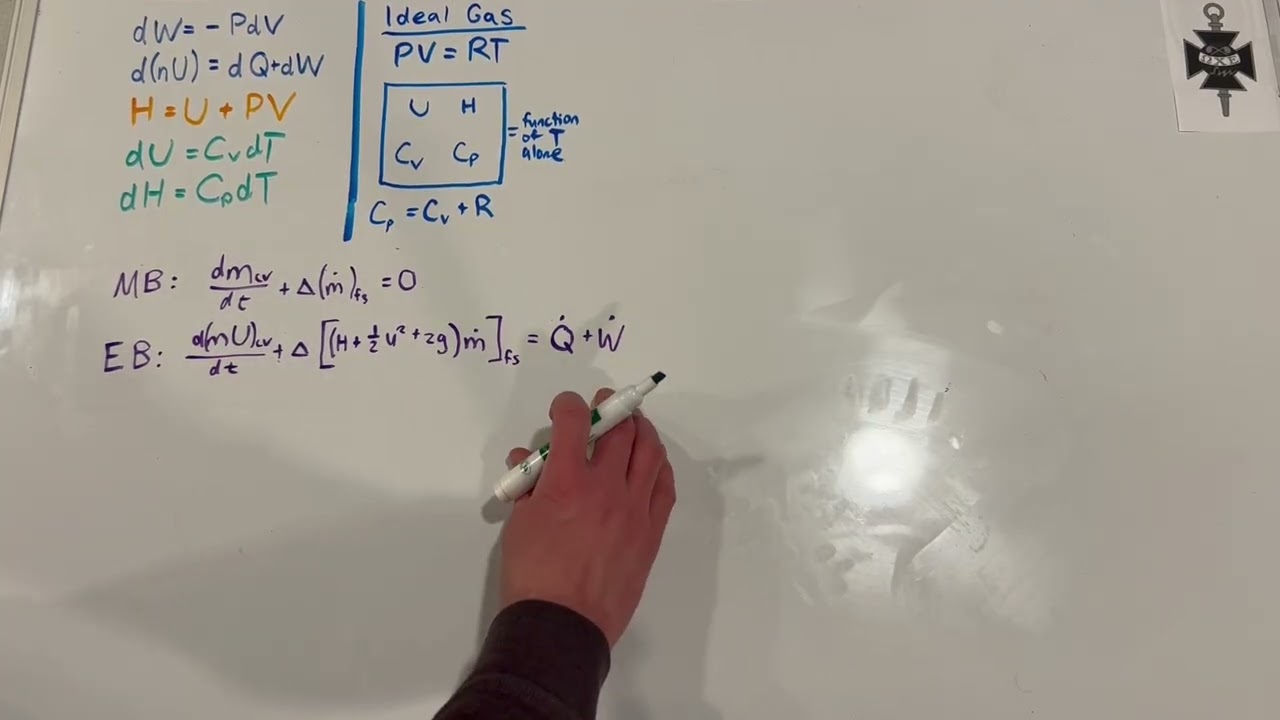 dW = - PdV
d(nU) = dQ+dW
H = U + PV
dU = C_V dT
dH = C_P dT
Ideal Gas
PV = RT
U H
C_V C_P
= function of T alone
C_P = C_V + R
MB: dm_cv/dt + Δ(ṁ)_fs = 0
EB: d(mU)_cv/dt + Δ[(H + 1/2 u² + zg)ṁ]_fs = Q̇ + Ẇ
ΩΧΕ